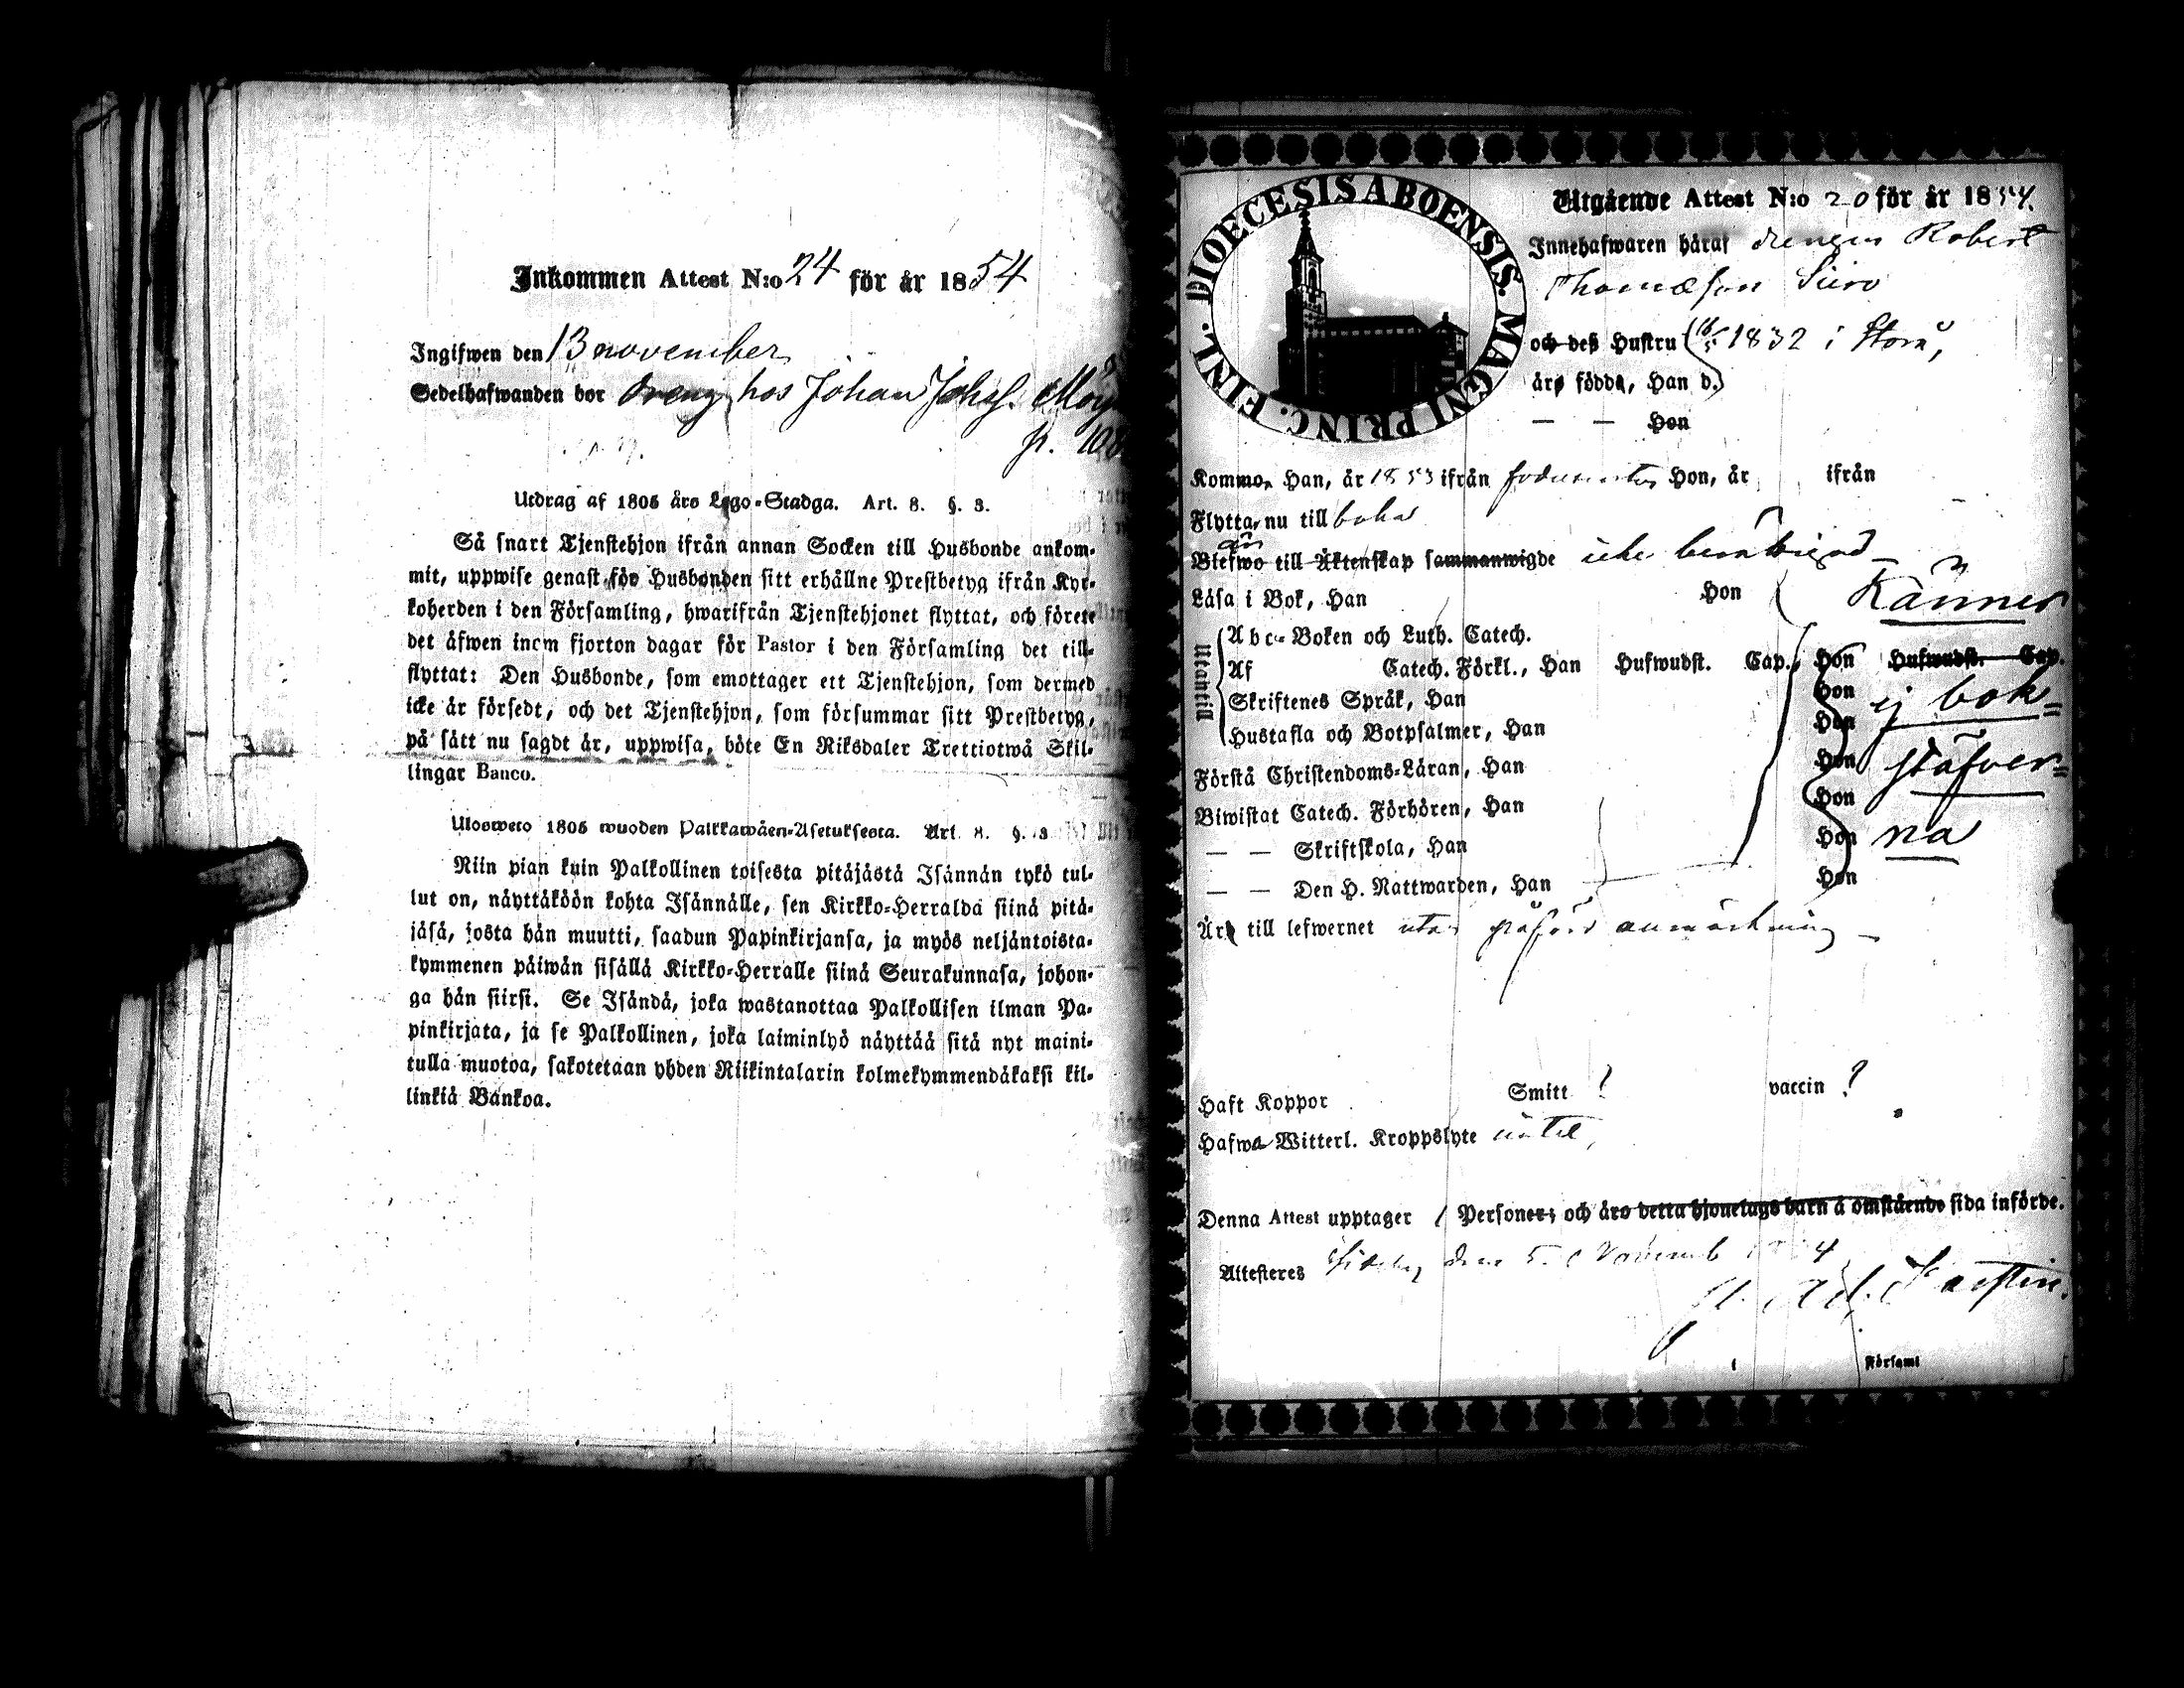 Inkommen Attest N:o 24 för år 1854
Ingifwen den 13 november
Sedelhafwanden bor dreng hos Johan Johss.
Utdrag af 1805 års Lego-Stadga. Art. 8. §. 3.
Så snart Tjenstehjon ifrån annan Socken till Husbonde ankom-
mit, uppwise genast för Husbonden sitt erhållne Prestbetyg ifrån Kyr-
koherden i den Församling, hwarifrån Tjenstehjonet flyttat, och förete
det äfwen inom fjorton dagar för Pastor i den Församling det till-
flyttat: Den Husbonde, som emottager ett Tjenstehjon, som dermed
icke är försedt, och det Tjenstehjon, som försummar sitt Prestbetyg,
på sätt nu sagdt är, uppwisa, böte En Riksdaler Trettiotwå Skil-
lingar Banco.
Ulosweto 1805 wuoden Palkkawäen-Asetuksesta. Art. 8. §. 3
Niin pian kuin Palkollinen toisesta pitäjästä Isännän tykö tul-
lut on, näyttäköön kohta Isännälle, sen Kirkko-Herralda siinä pitä-
jäsä, josta hän muutti, saadun Papinkirjansa, ja myös neljäntoista-
kymmenen päiwän sisällä Kirkko-Herralle siinä Seurakunnasa, johon-
ga hän siirsi. Se Isändä, joka wastanottaa Palkollisen ilman Pa-
pinkirjata, ja se Palkollinen, joka laiminlyö näyttää sitä nyt maini-
tulla muotoa, sakotetaan yhden Riikintalarin kolmekymmendäkaksi kil-
linkiä Bankoa.
DIOECESIS ABOENSIS. MAGNI PRINC. FINL.
Utgående Attest N:o 20 för år 1854.
Innehafwaren häraf drengen Robert
Thomæson Siiro
och deß Hustru 1832 i Storå,
äro födde, Han d.
— — Hon
Kommo, Han, år 1853 ifrån Hon, år ifrån
Flytta, nu till
Blefwo till Äktenskap sammanwigde
Läsa i Bok, Han Hon Känner
Utantill
Abc-Boken och Luth. Catech.
Af Catech. Förkl., Han Hufwudst. Cap., Hon Hufwudst. Cap.
Skriftenes Språk, Han Hon ej bok=
Hustafla och Botpsalmer, Han Hon
Förstå Christendoms-Läran, Han Hon stäfver=
Biwistat Catech. Förhören, Han Hon
— — Skriftskola, Han Hon na
— — Den H. Nattwarden, Han Hon
Är till lefwernet utan påförd anmärkning —
Haft Koppor Smitt ? vaccin ?
Hafwa Witterl. Kroppslyte intet,
Denna Attest upptager 1 Personer; och äro detta hjonelags barn å omstående sida införde.
Attesteres Sideby den 5. Novemb 1854
Församl